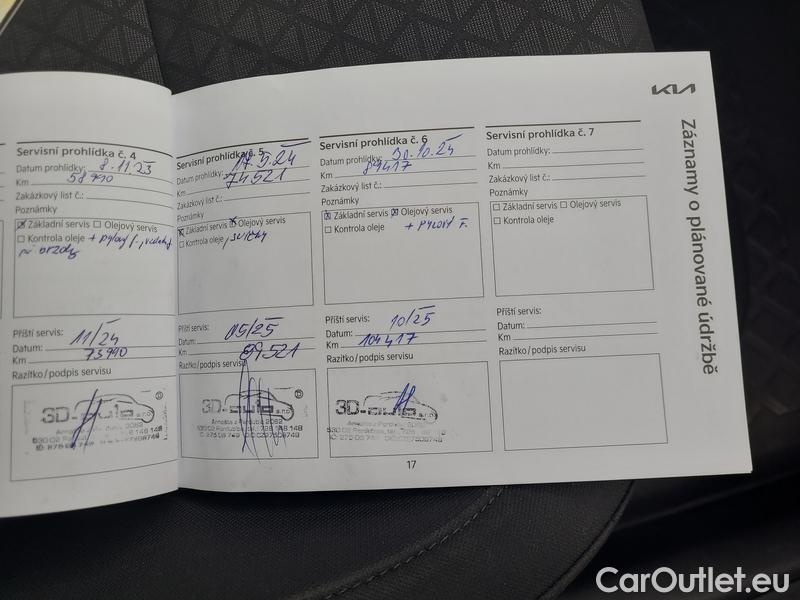 KIA
Záznamy o plánované údržbě
Servisní prohlídka č. 4
Datum prohlídky: 8.11.23
Km 58 990
Zakázkový list č.:
Poznámky
Základní servis Olejový servis
Kontrola oleje + pylový f.,
Příští servis:
Datum: 11/24
Km 73 990
Razítko/podpis servisu
3D-auto s.r.o.
Servisní prohlídka č. 5
Datum prohlídky: 17.5.24
Km 74521
Zakázkový list č.:
Poznámky
Základní servis Olejový servis
Kontrola oleje, svíčky
Příští servis:
Datum: 05/25
Km 89.521
Razítko/podpis servisu
3D-auto s.r.o.
Servisní prohlídka č. 6
Datum prohlídky: 30.10.24
Km 89417
Zakázkový list č.:
Poznámky
Základní servis Olejový servis
Kontrola oleje + pylový F.
Příští servis:
Datum: 10/25
Km 104417
Razítko/podpis servisu
3D-auto s.r.o.
Servisní prohlídka č. 7
Datum prohlídky:
Km
Zakázkový list č.:
Poznámky
Základní servis Olejový servis
Kontrola oleje
Příští servis:
Datum:
Km
Razítko/podpis servisu
17
CarOutlet.eu